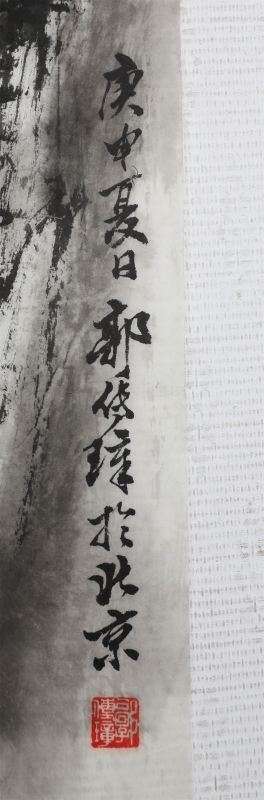 庚申夏日郭传璋於北京
郭傳璋